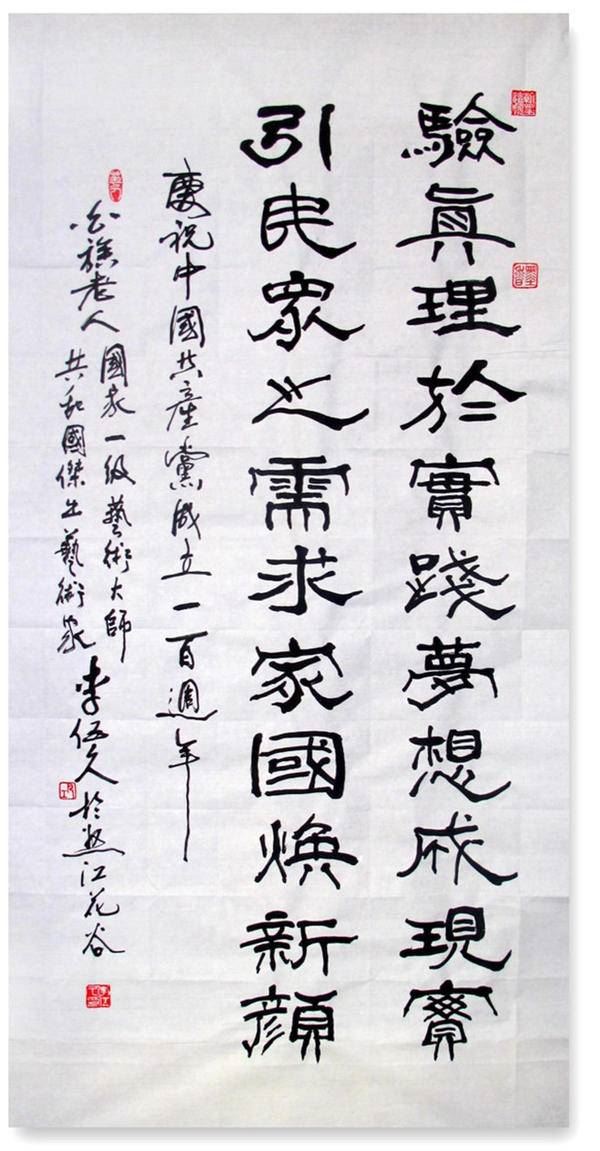 驗眞理於實踐夢想成現實
引民眾之需求家國煥新顔
慶祝中國共產黨成立一百週年
老人
國家一級藝術大師
共和國傑出藝術家
李伍久於江花谷